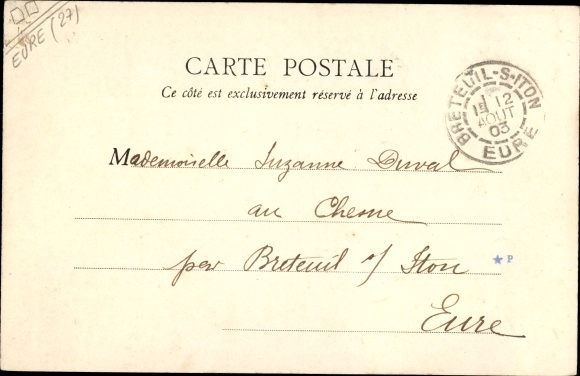 EURE (27)
CARTE POSTALE
Ce côté est exclusivement réservé à l'adresse
BRETEUIL-S-ITON
12
AOUT
03
EURE
Mademoiselle Suzanne Duval
au Chesne
par Breteuil s/ Iton
P
Eure